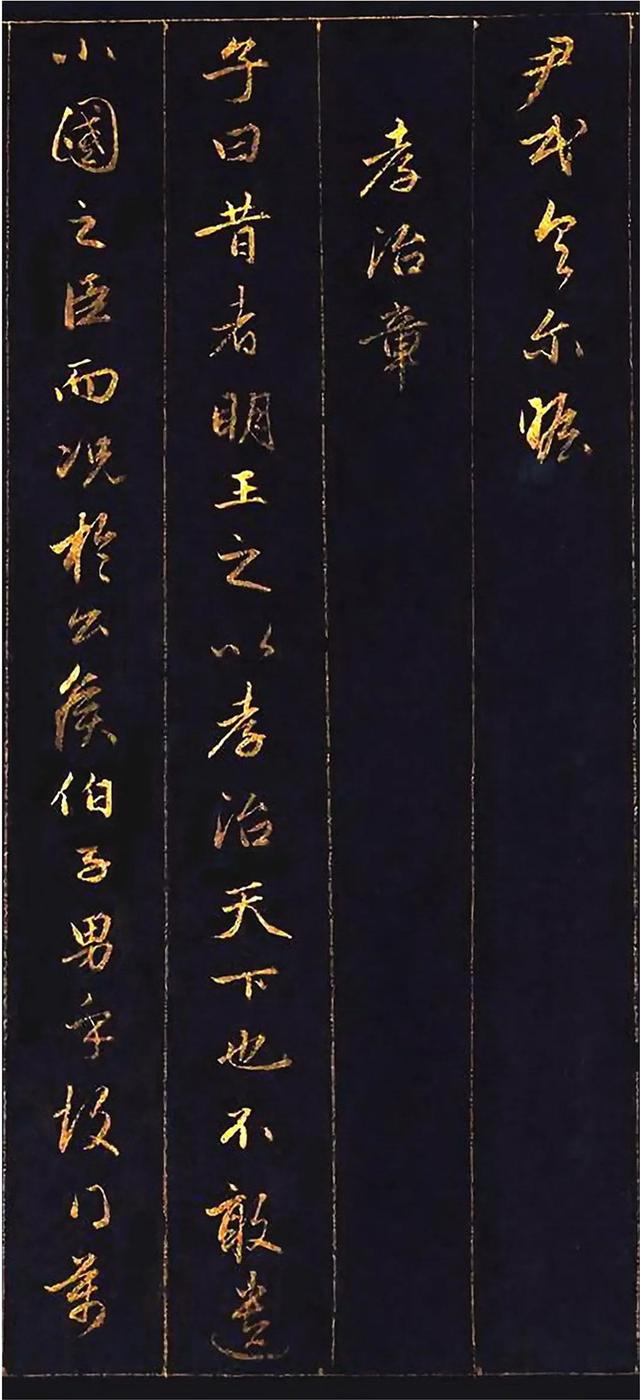 尹民具尔瞻
孝治章
子曰昔者明王之以孝治天下也不敢遺
小國之臣而況於公侯伯子男乎故得萬